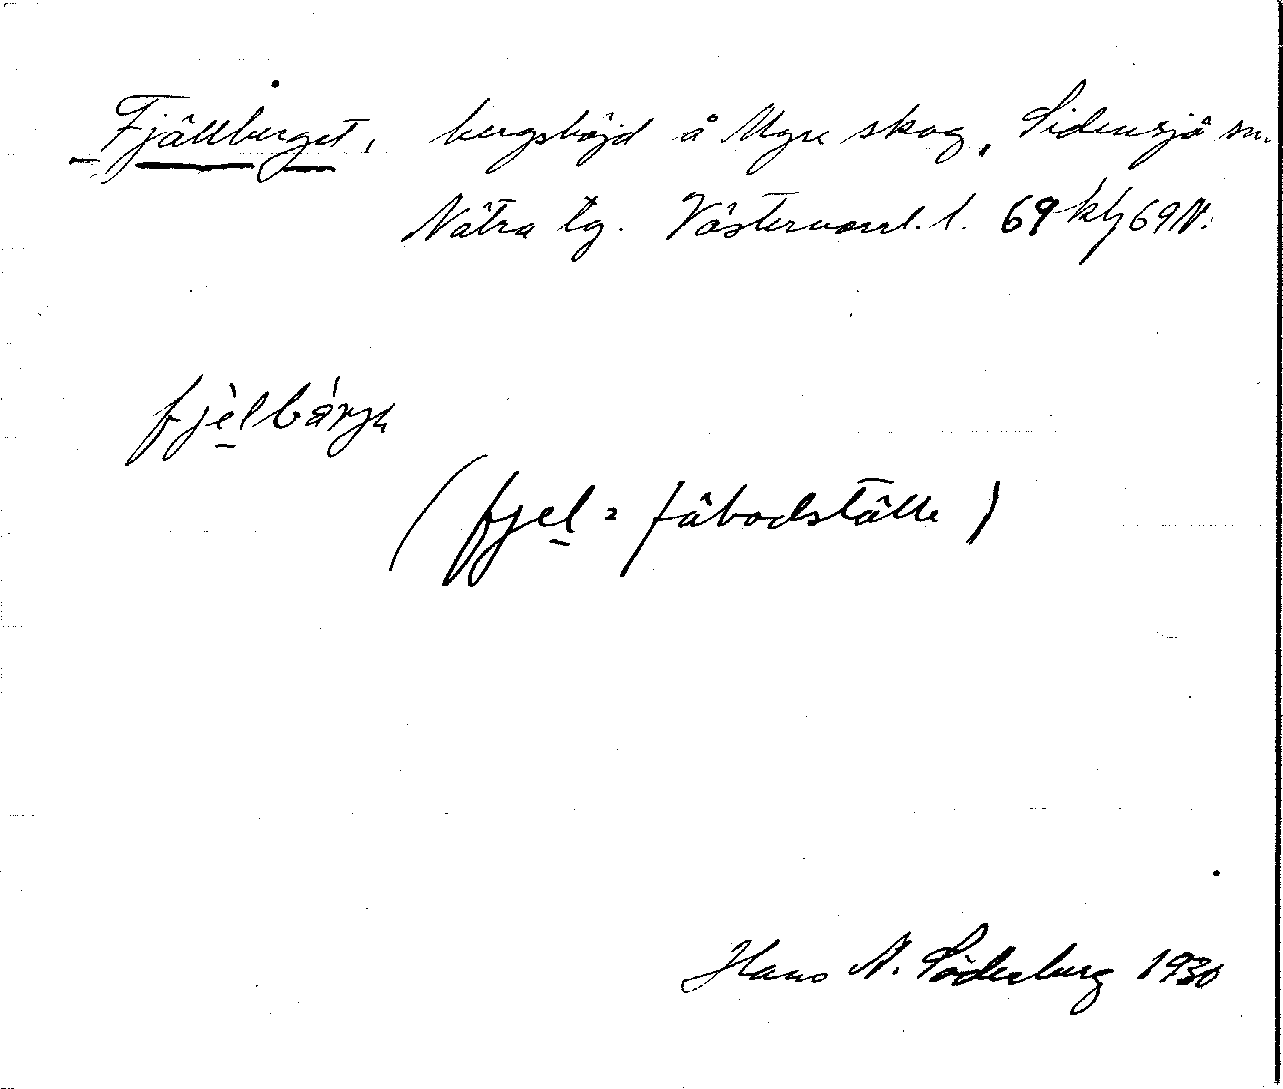 Fjällberget, bergshöjd å Myre skog, Sidensjö sn.
Nätra tg. Västernorrl. l. 69 69 N.
fjèlbárjɥ
(fjel = fäbodställe)
Hans N. Söderberg 1930